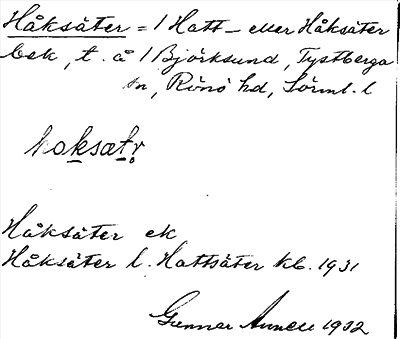 Håksäter = 1 Hatt- eller Håksäter
bek, t. å 1 Björksund, Tystberga
sn, Rönö hd, Sörml. l
hoksætr
Håksäter ek
Håksäter l. Hattsäter kb. 1931
Gunnar 1932